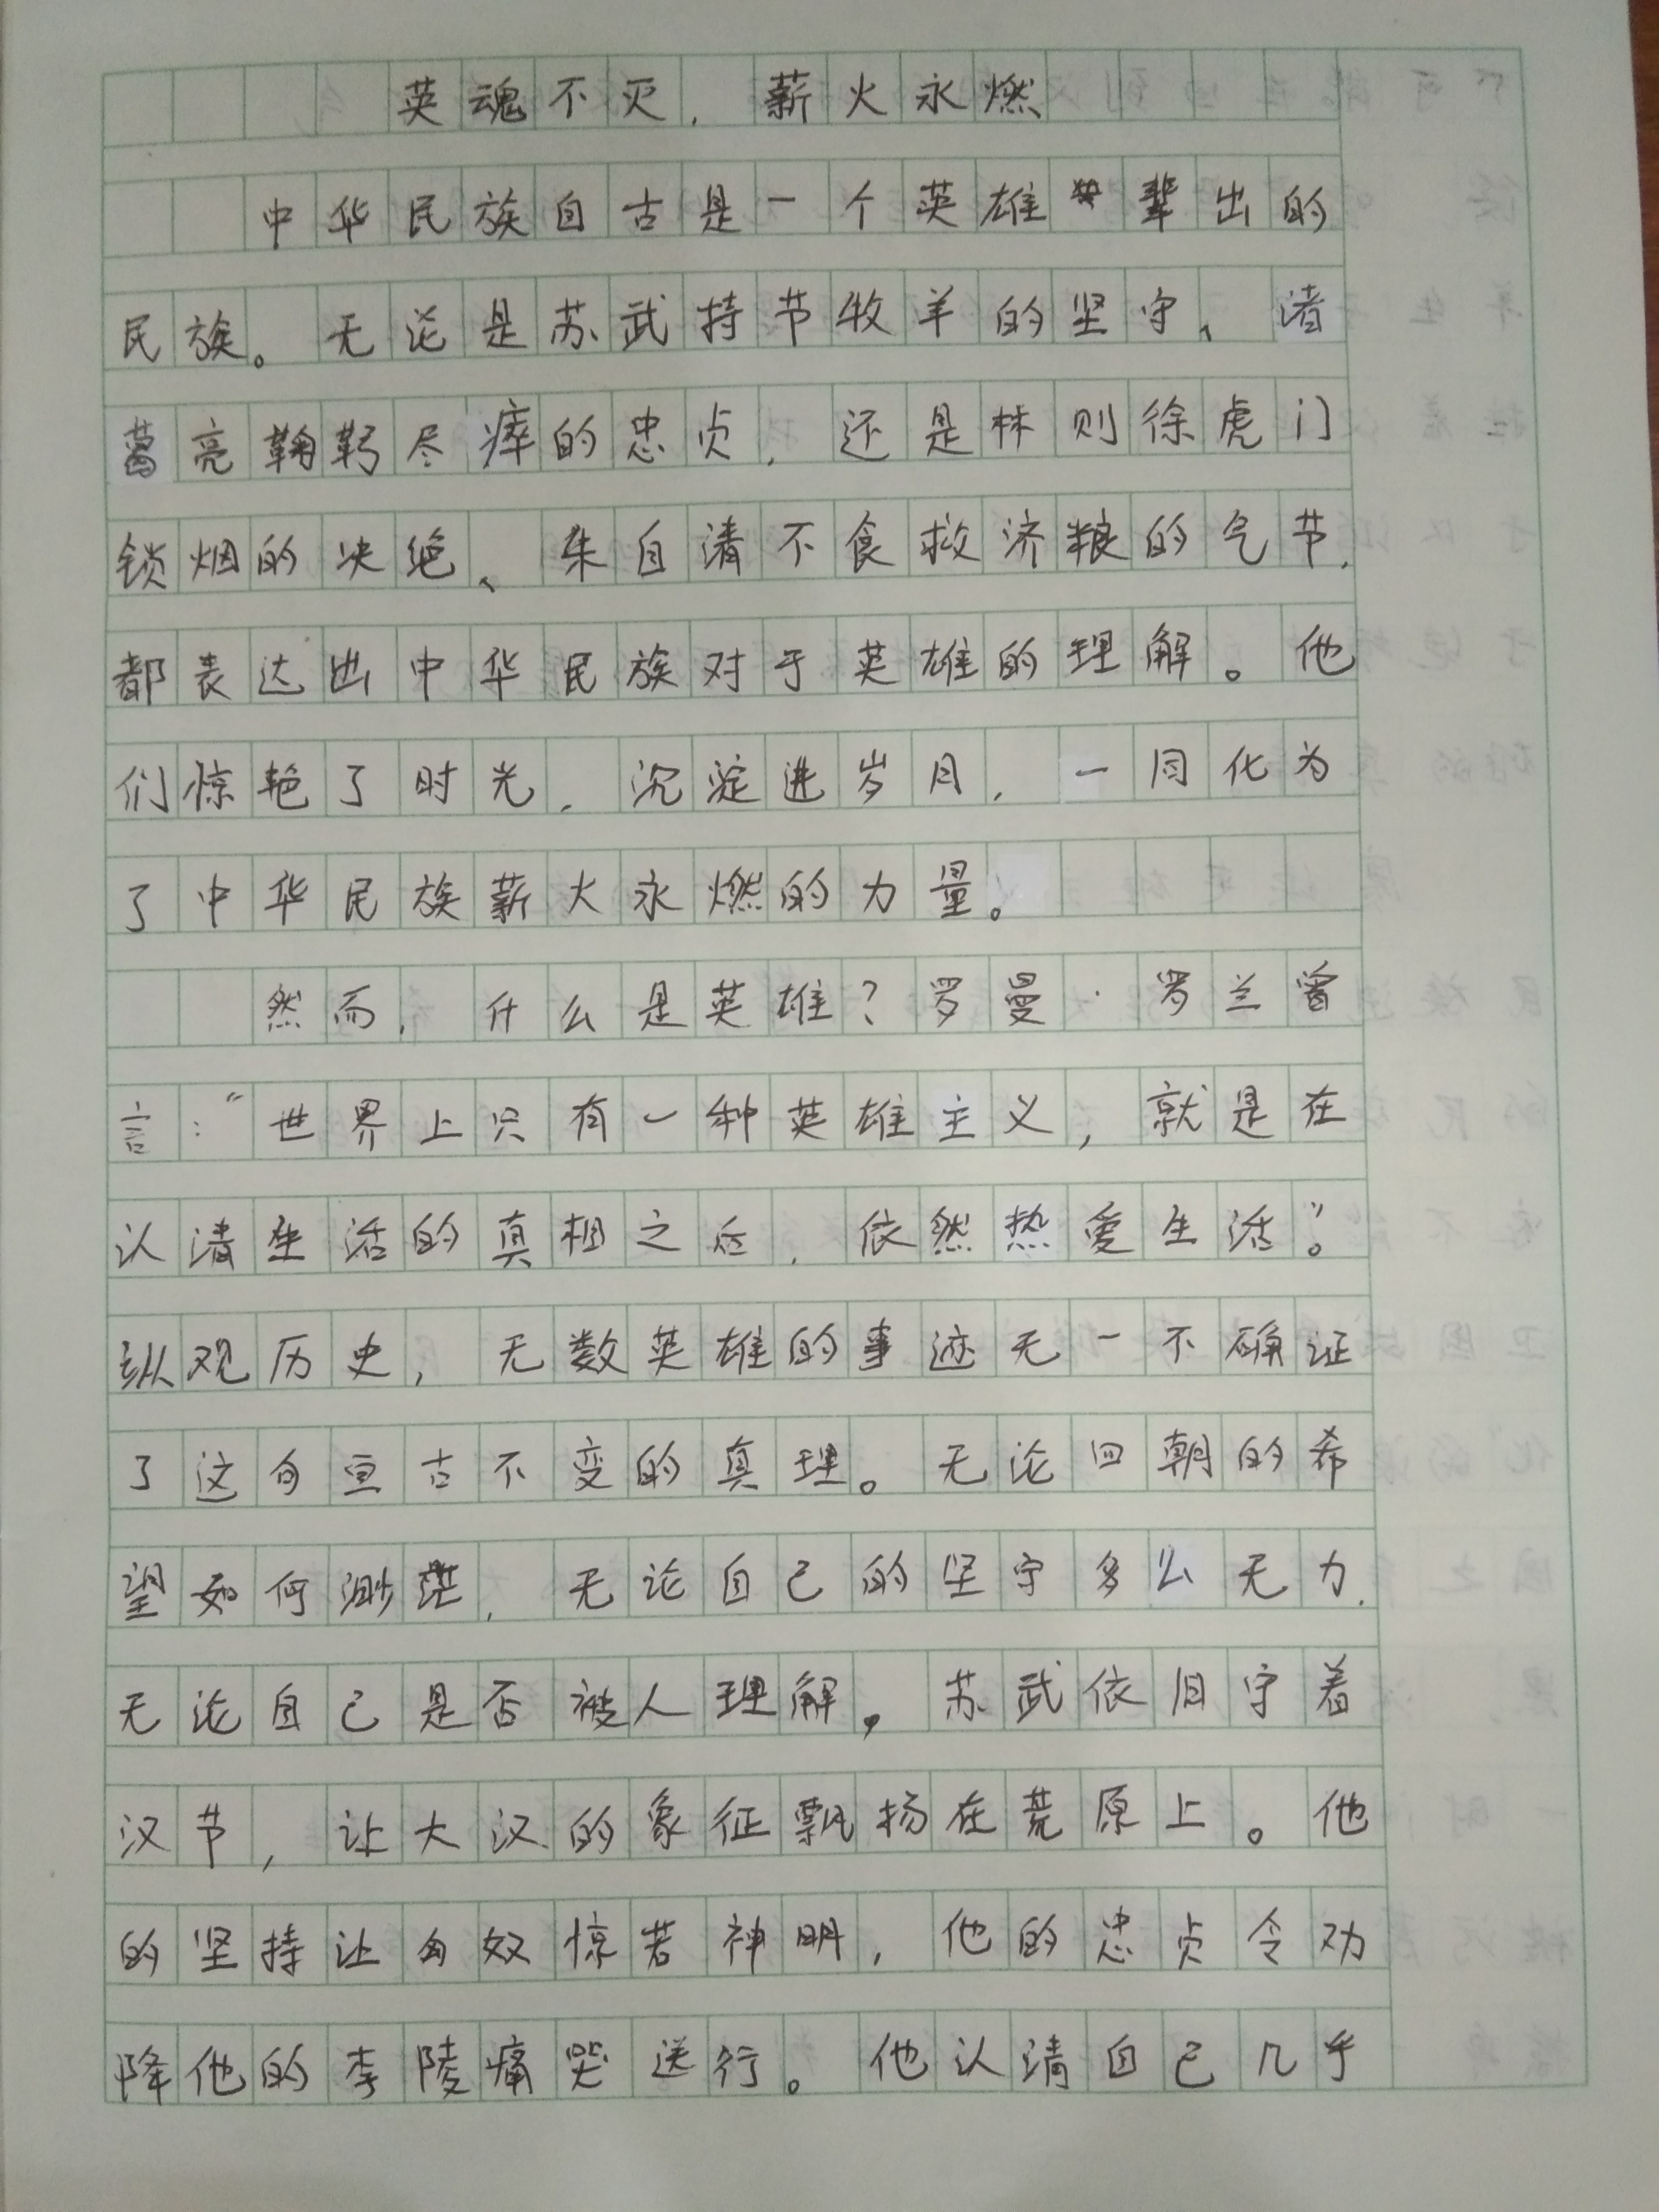 英魂不灭，薪火永燃
中华民族自古是一个英雄辈出的
民族。无论是苏武持节牧羊的坚守、诸
葛亮鞠躬尽瘁的忠贞，还是林则徐虎门
锁烟的决绝、朱自清不食救济粮的气节，
都表达出中华民族对于英雄的理解。他
们惊艳了时光，沉淀进岁月，一同化为
了中华民族薪火永燃的力量。
然而，什么是英雄？罗曼·罗兰曾
言：“世界上只有一种英雄主义，就是在
认清生活的真相之后，依然热爱生活”。
纵观历史，无数英雄的事迹无一不确证
了这句亘古不变的真理。无论回朝的希
望如何渺茫，无论自己的坚守多么无力，
无论自己是否被人理解，苏武依旧守着
汉节，让大汉的象征飘扬在荒原上。他
的坚持让匈奴惊若神明，他的忠贞令劝
降他的李陵痛哭送行。他认清自己几乎